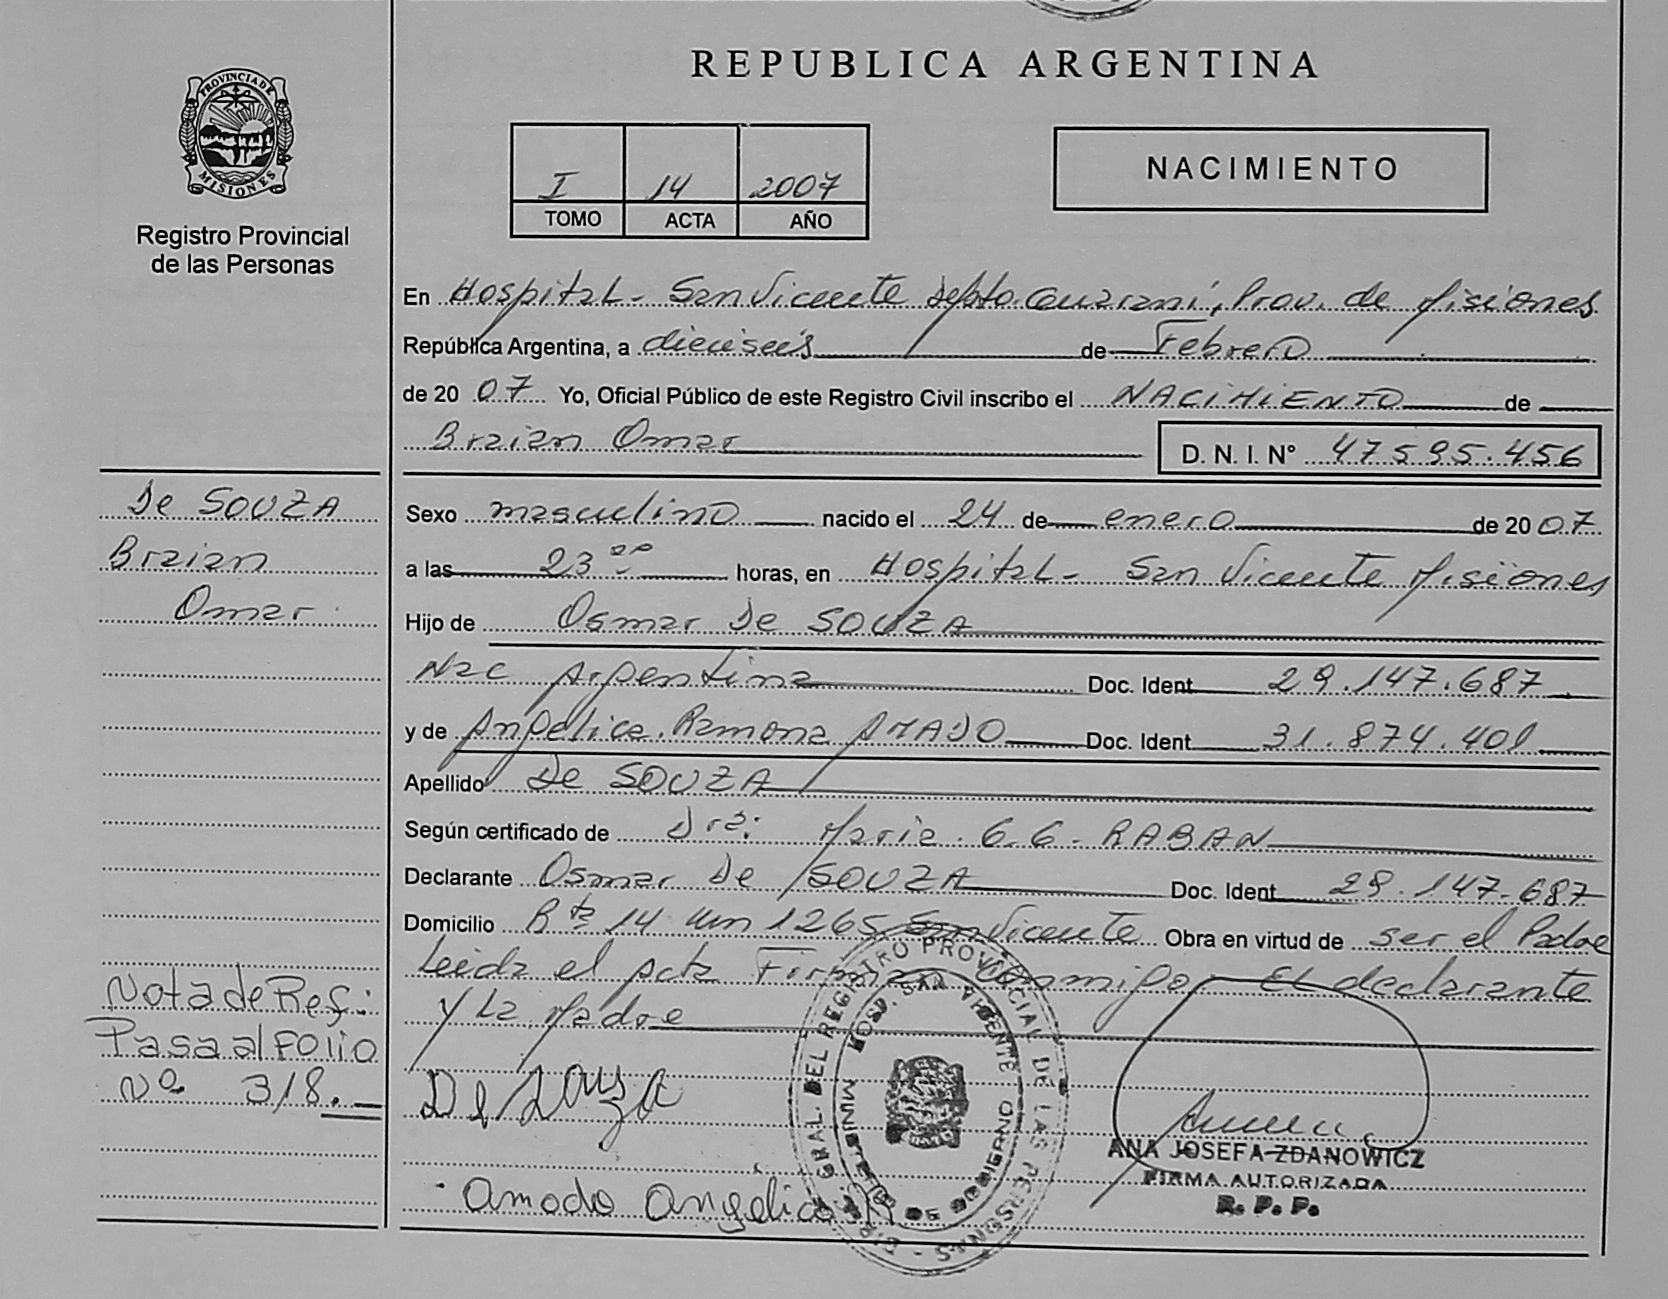 REPUBLICA ARGENTINA
PROVINCIA DE MISIONES
Registro Provincial
de las Personas
I 14 2007
TOMO ACTA AÑO
NACIMIENTO
En Hospital - San Vicente Depto. Guaraní, Prov. de Misiones
República Argentina, a dieciseis de Febrero
de 20 07 Yo, Oficial Público de este Registro Civil inscribo el NACIMIENTO de
Braian Omar D. N. I. N° 47595.456
De SOUZA
Braian
Omar
Sexo masculino nacido el 24 de enero de 20 07
a las 23 horas, en Hospital - San Vicente Misiones
Hijo de Osmar De SOUZA
Nac Argentina Doc. Ident 29.147.687
y de Angelica Ramona AMADO Doc. Ident 31.874.401
Apellido De SOUZA
Según certificado de Dra: Maria G.G. RABAN
Declarante Osmar De SOUZA Doc. Ident 29.147.687
Domicilio Rta 14 Km 1265 San Vicente Obra en virtud de ser el Padre
Leida el Acta Firman conmigo El declarante
y La Madre
Nota de Ref:
Pasa al Folio
Nº 318.
De Souza
Amado Angelica R
DIR. GRAL. DEL REGISTRO PROVINCIAL DE LAS PERSONAS
HOSP. SAN VICENTE
MINISTERIO DE GOBIERNO
ANA JOSEFA ZDANOWICZ
FIRMA AUTORIZADA
R. P. P.